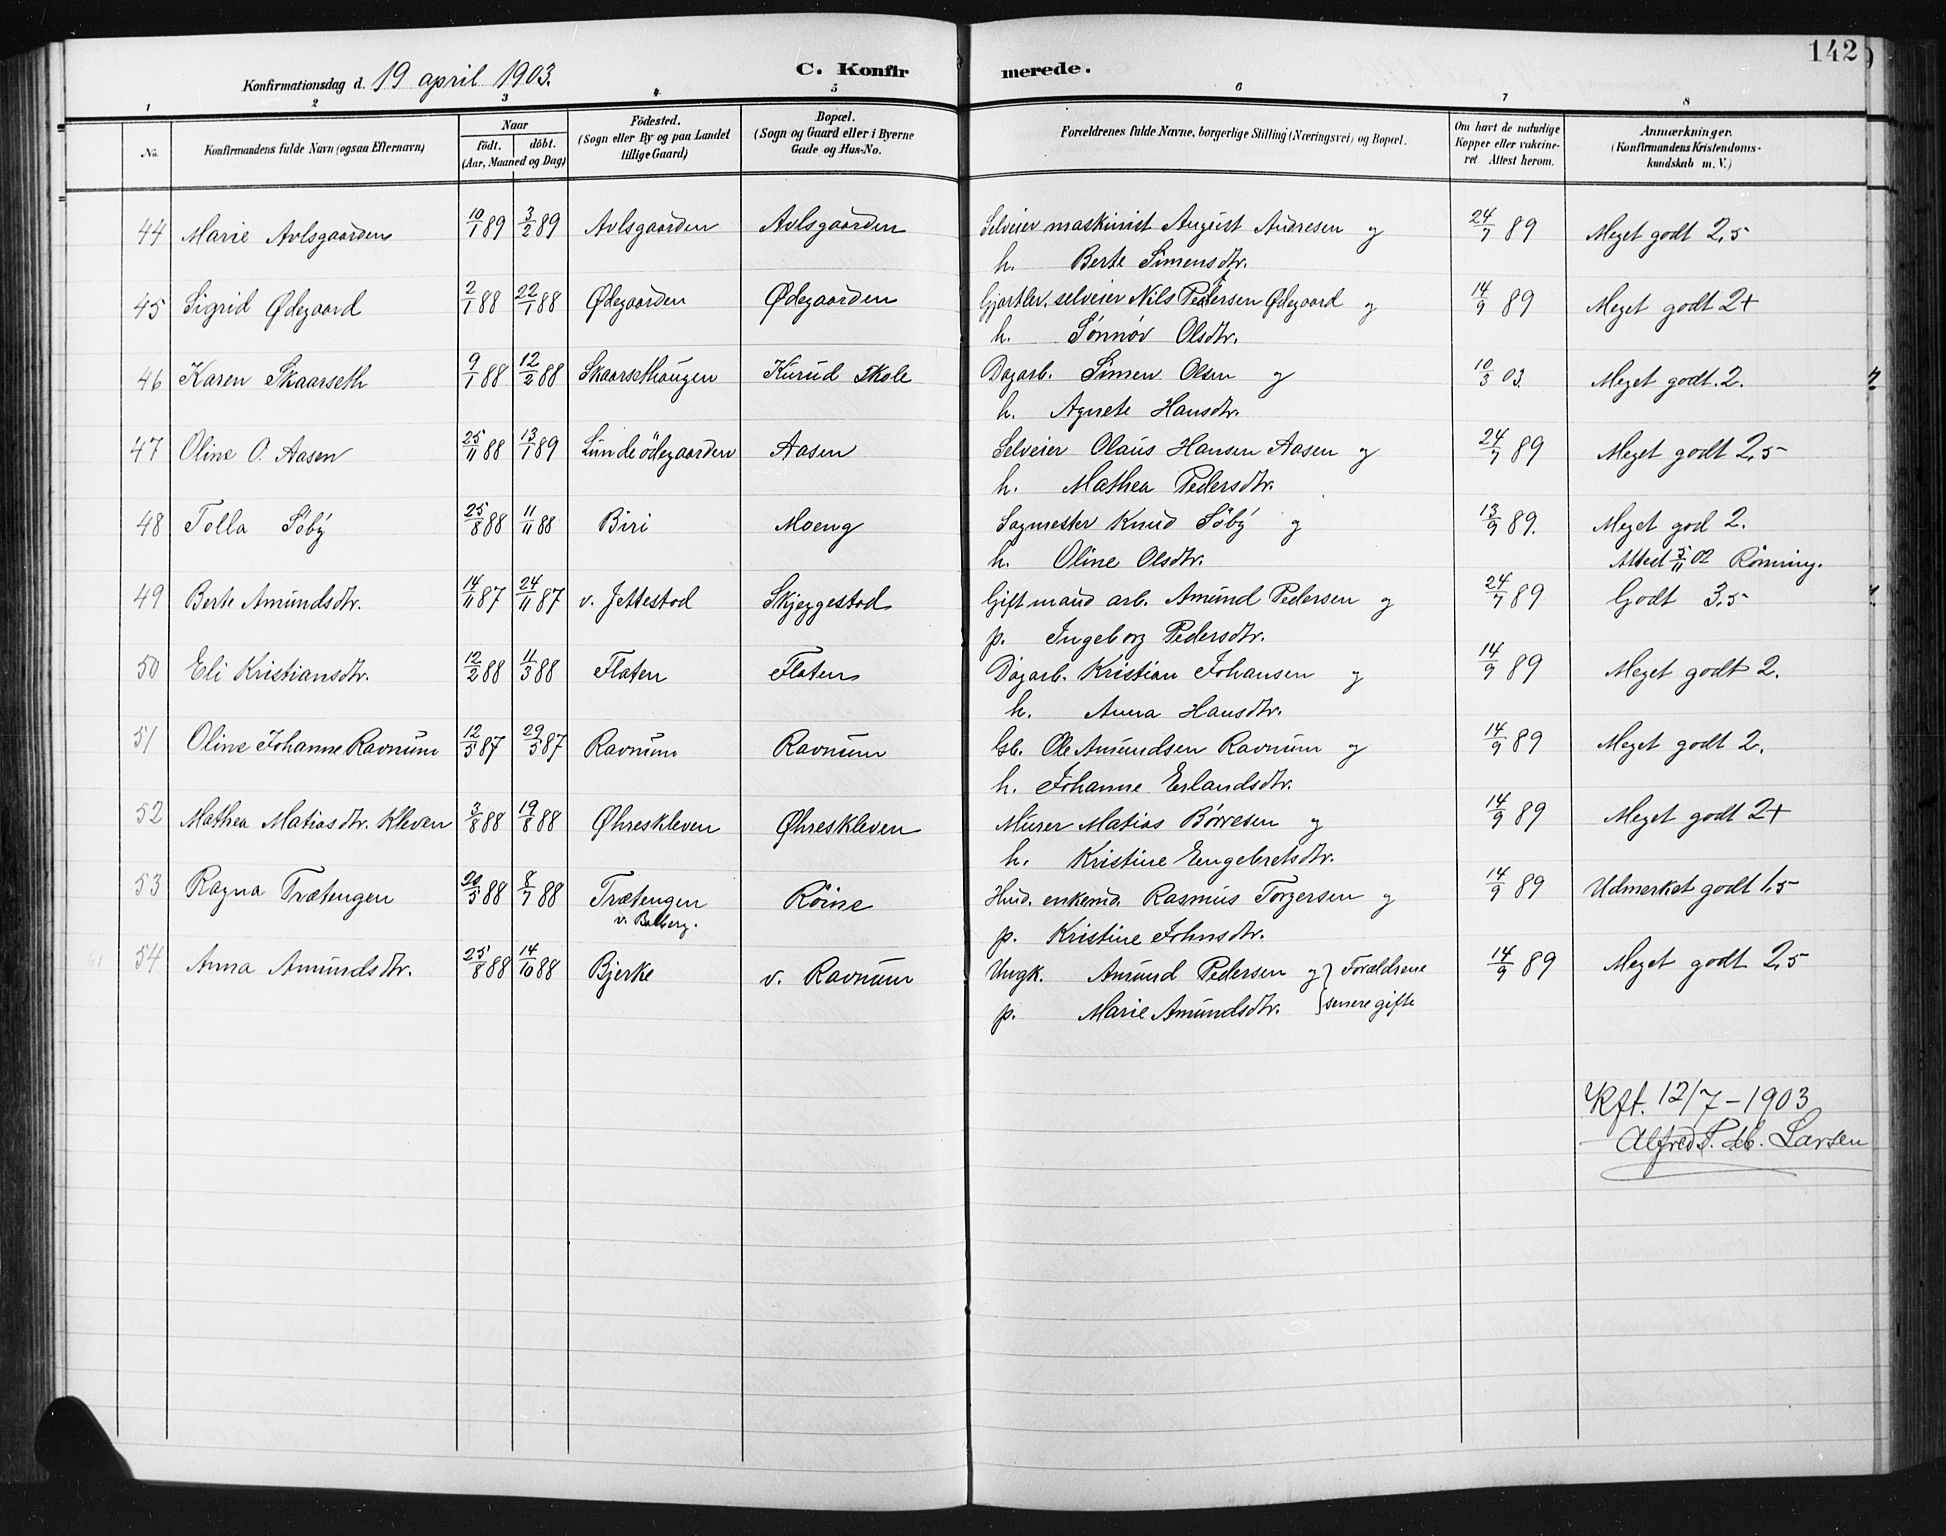 142
Konfirmationsdag d. 19 april 1903.
C. Konfirmerede.
1 2 3 4 5 6 7 8
No. Konfirmandens fulde Navn (ogsaa Efternavn) Naar födt. döbt. (Aar, Maaned og Dag) Födested. (Sogn eller By og paa Landet tillige Gaard) Bopæl. (Sogn og Gaard eller i Byerne Gade og Hus-No. Forældrenes fulde Navne, borgerlige Stilling (Næringsvei) og Bopæl. Om havt de naturlige Kopper eller vakcineret Attest herom. Anmærkninger. (Konfirmandens Kristendomskundskab m. V.)
44 Marie Avlsgaarden 10/1 89 3/2 89 Avlsgaarden Avlsgaarden Selveier maskinist August Andresen og 24/7 89 Meget godt 2,5
h. Berte Simensdtr.
45 Sigrid Ødegaard 2/1 88 22/1 88 Ødegaarden Ødegaarden Gjørtler, selveier Nils Pedersen Ødegaard og 14/9 89 Meget godt 2+
h. Sønnøv Olsdtr.
46 Karen Skaarseth 9/1 88 12/2 88 Skaarsethaugen Kurud Skole Dagarb. Simen Olsen og 10/3 03. Meget godt. 2.
h. Agnete Hansdtr.
47 Oline O. Aasen 25/11 88 13/1 89 Lundeödegaarden Aasen Selveier Olaus Hansen Aasen og 24/7 89 Meget godt 2,5
h. Mathea Pedersdtr.
48 Tolla Söbÿ 25/8 88 11/11 88 Biri Moeng Sagmester Knud Söbÿ og 13/9 89. Meget god 2.
h. Oline Olsdtr. Attest 5/11 02 Rönning.
49 Berte Amundsdtr. 14/11 87 24/11 87 v. Jettestad Skjeggestad Gift mand arb. Amund Pedersen og 24/7 89 Godt 3,5
p. Ingeborg Pedersdtr.
50 Eli Kristiansdtr. 12/2 88 11/3 88 Flaten Flaten Dagarb. Kristian Johansen og 14/9 89 Meget godt 2.
h. Anna Hansdtr.
51 Oline Johanne Ravnum 12/5 87 29/5 87 Ravnum Ravnum Gb. Ole Amundsen Ravnum og 14/9 89 Meget godt 2.
h. Johanne Erlandsdtr.
52 Mathea Matiasdtr. Kleven 3/8 88 19/8 88 Øhreskleven Øhreskleven Murer Matias Börresen og 14/9 89 Meget godt 2+
h. Kristine Engebretsdtr.
53 Ragna Trætengen 20/5 88 8/7 88 Trætengen v. Balberg. Röine Husd. enkemd. Rasmus Torgersen og 14/9 89 Udmerket godt 1,5
p. Kristine Johnsdtr.
54 Anna Amundsdtr. 25/8 88 14/10 88 Bjerke v. Ravnum Ungk. Amund Pedersen og } Forældrene 14/9 89 Meget godt 2,5
p. Marie Amundsdtr. } senere gifte
Kft. 12/7 - 1903
Larsen